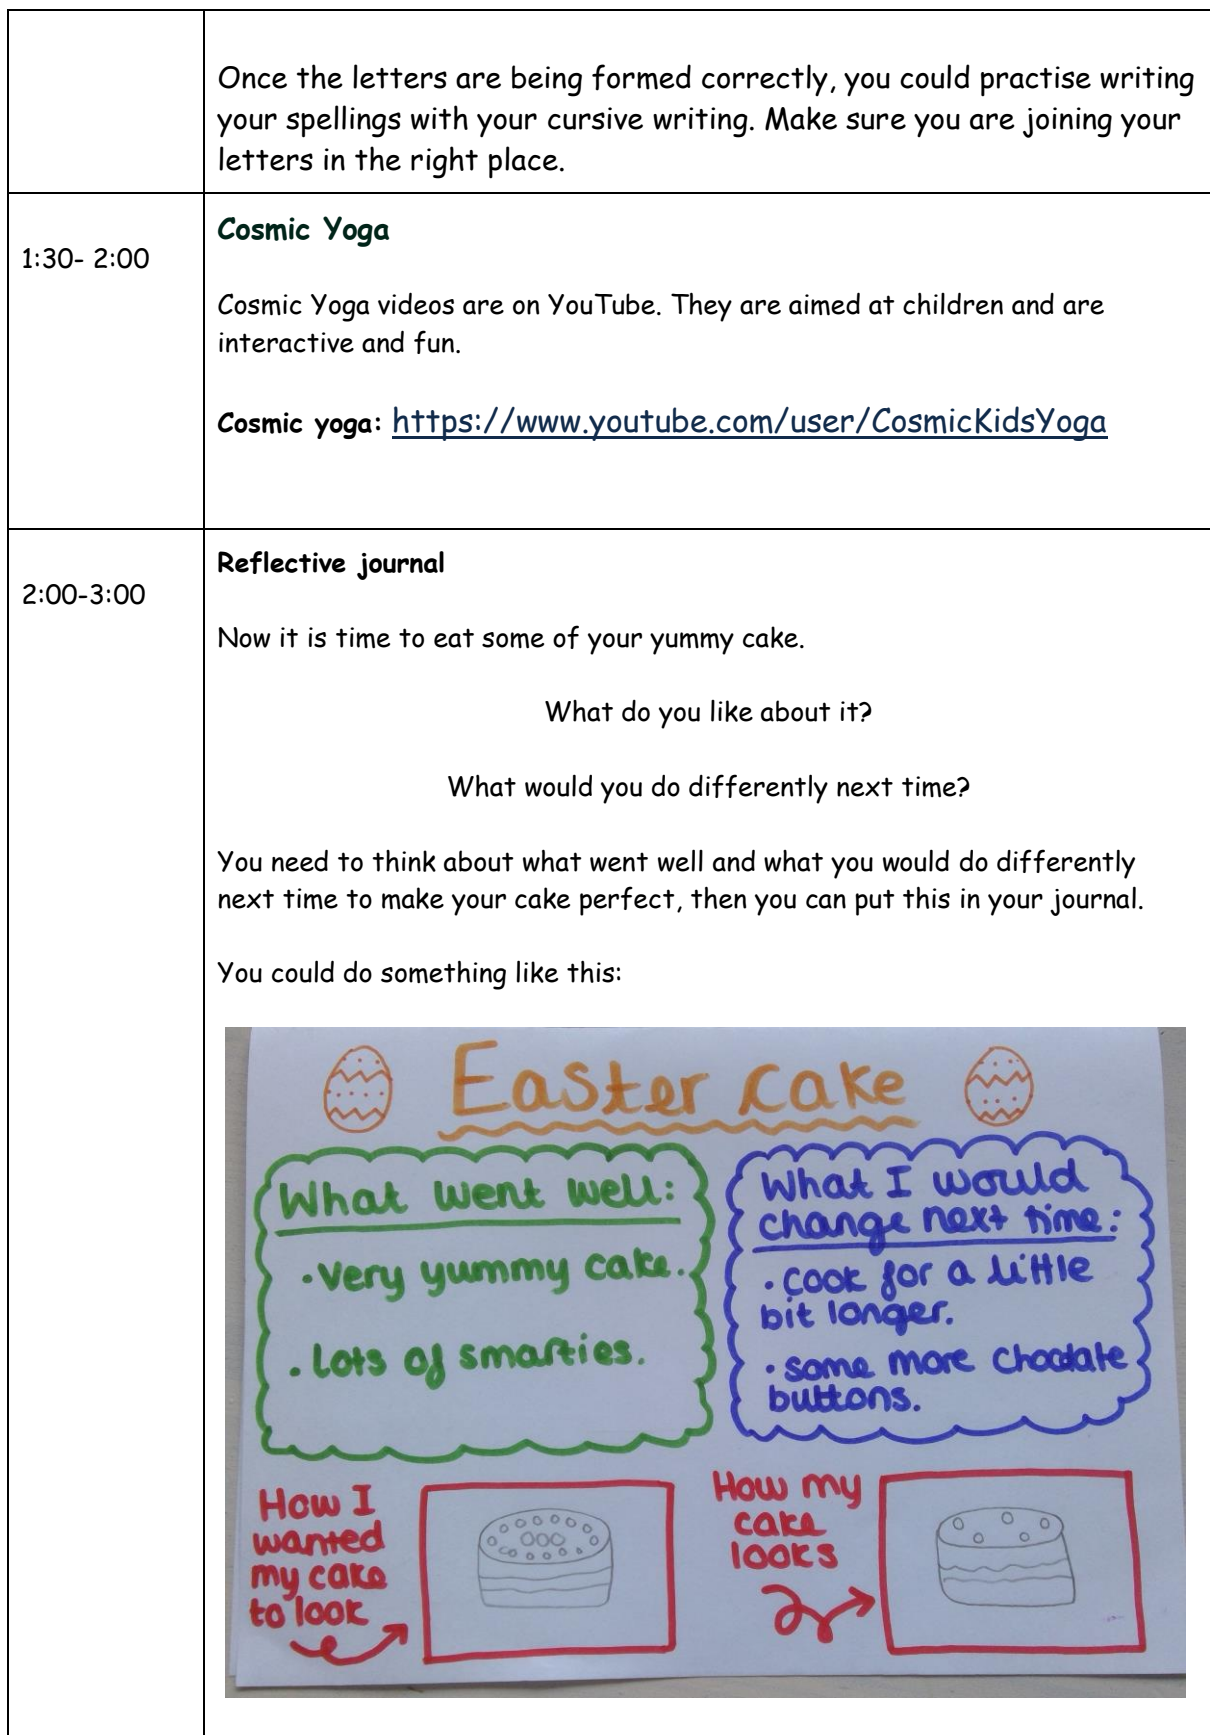 Once the letters are being formed correctly, you could practise writing
your spellings with your cursive writing. Make sure you are joining your
letters in the right place.
1:30- 2:00
Cosmic Yoga
Cosmic Yoga videos are on YouTube. They are aimed at children and are
interactive and fun.
Cosmic yoga: https://www.youtube.com/user/CosmicKidsYoga
2:00-3:00
Reflective journal
Now it is time to eat some of your yummy cake.
What do you like about it?
What would you do differently next time?
You need to think about what went well and what you would do differently
next time to make your cake perfect, then you can put this in your journal.
You could do something like this:
Easter cake
What went well:
·very yummy cake.
·Lots of smarties.
What I would
change next time:
·cook for a little
bit longer.
·some more chocolate
buttons.
How I
wanted
my cake
to look
How my
cake
looks